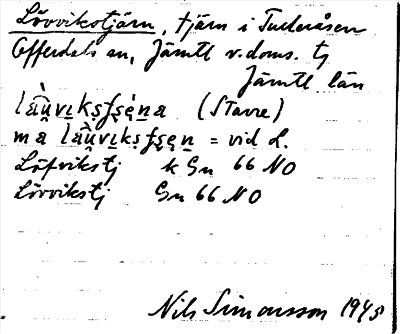 Lövvikstjärn, tjärn i Tulleråsen
Offerdals sn, Jämtl v. doms. tj
Jämtl län
(Stavre)
ma = vid L.
Löfvikstj k Gn 66 NO
Lövvikstj Gn 66 NO
Nils Simonsson 1945